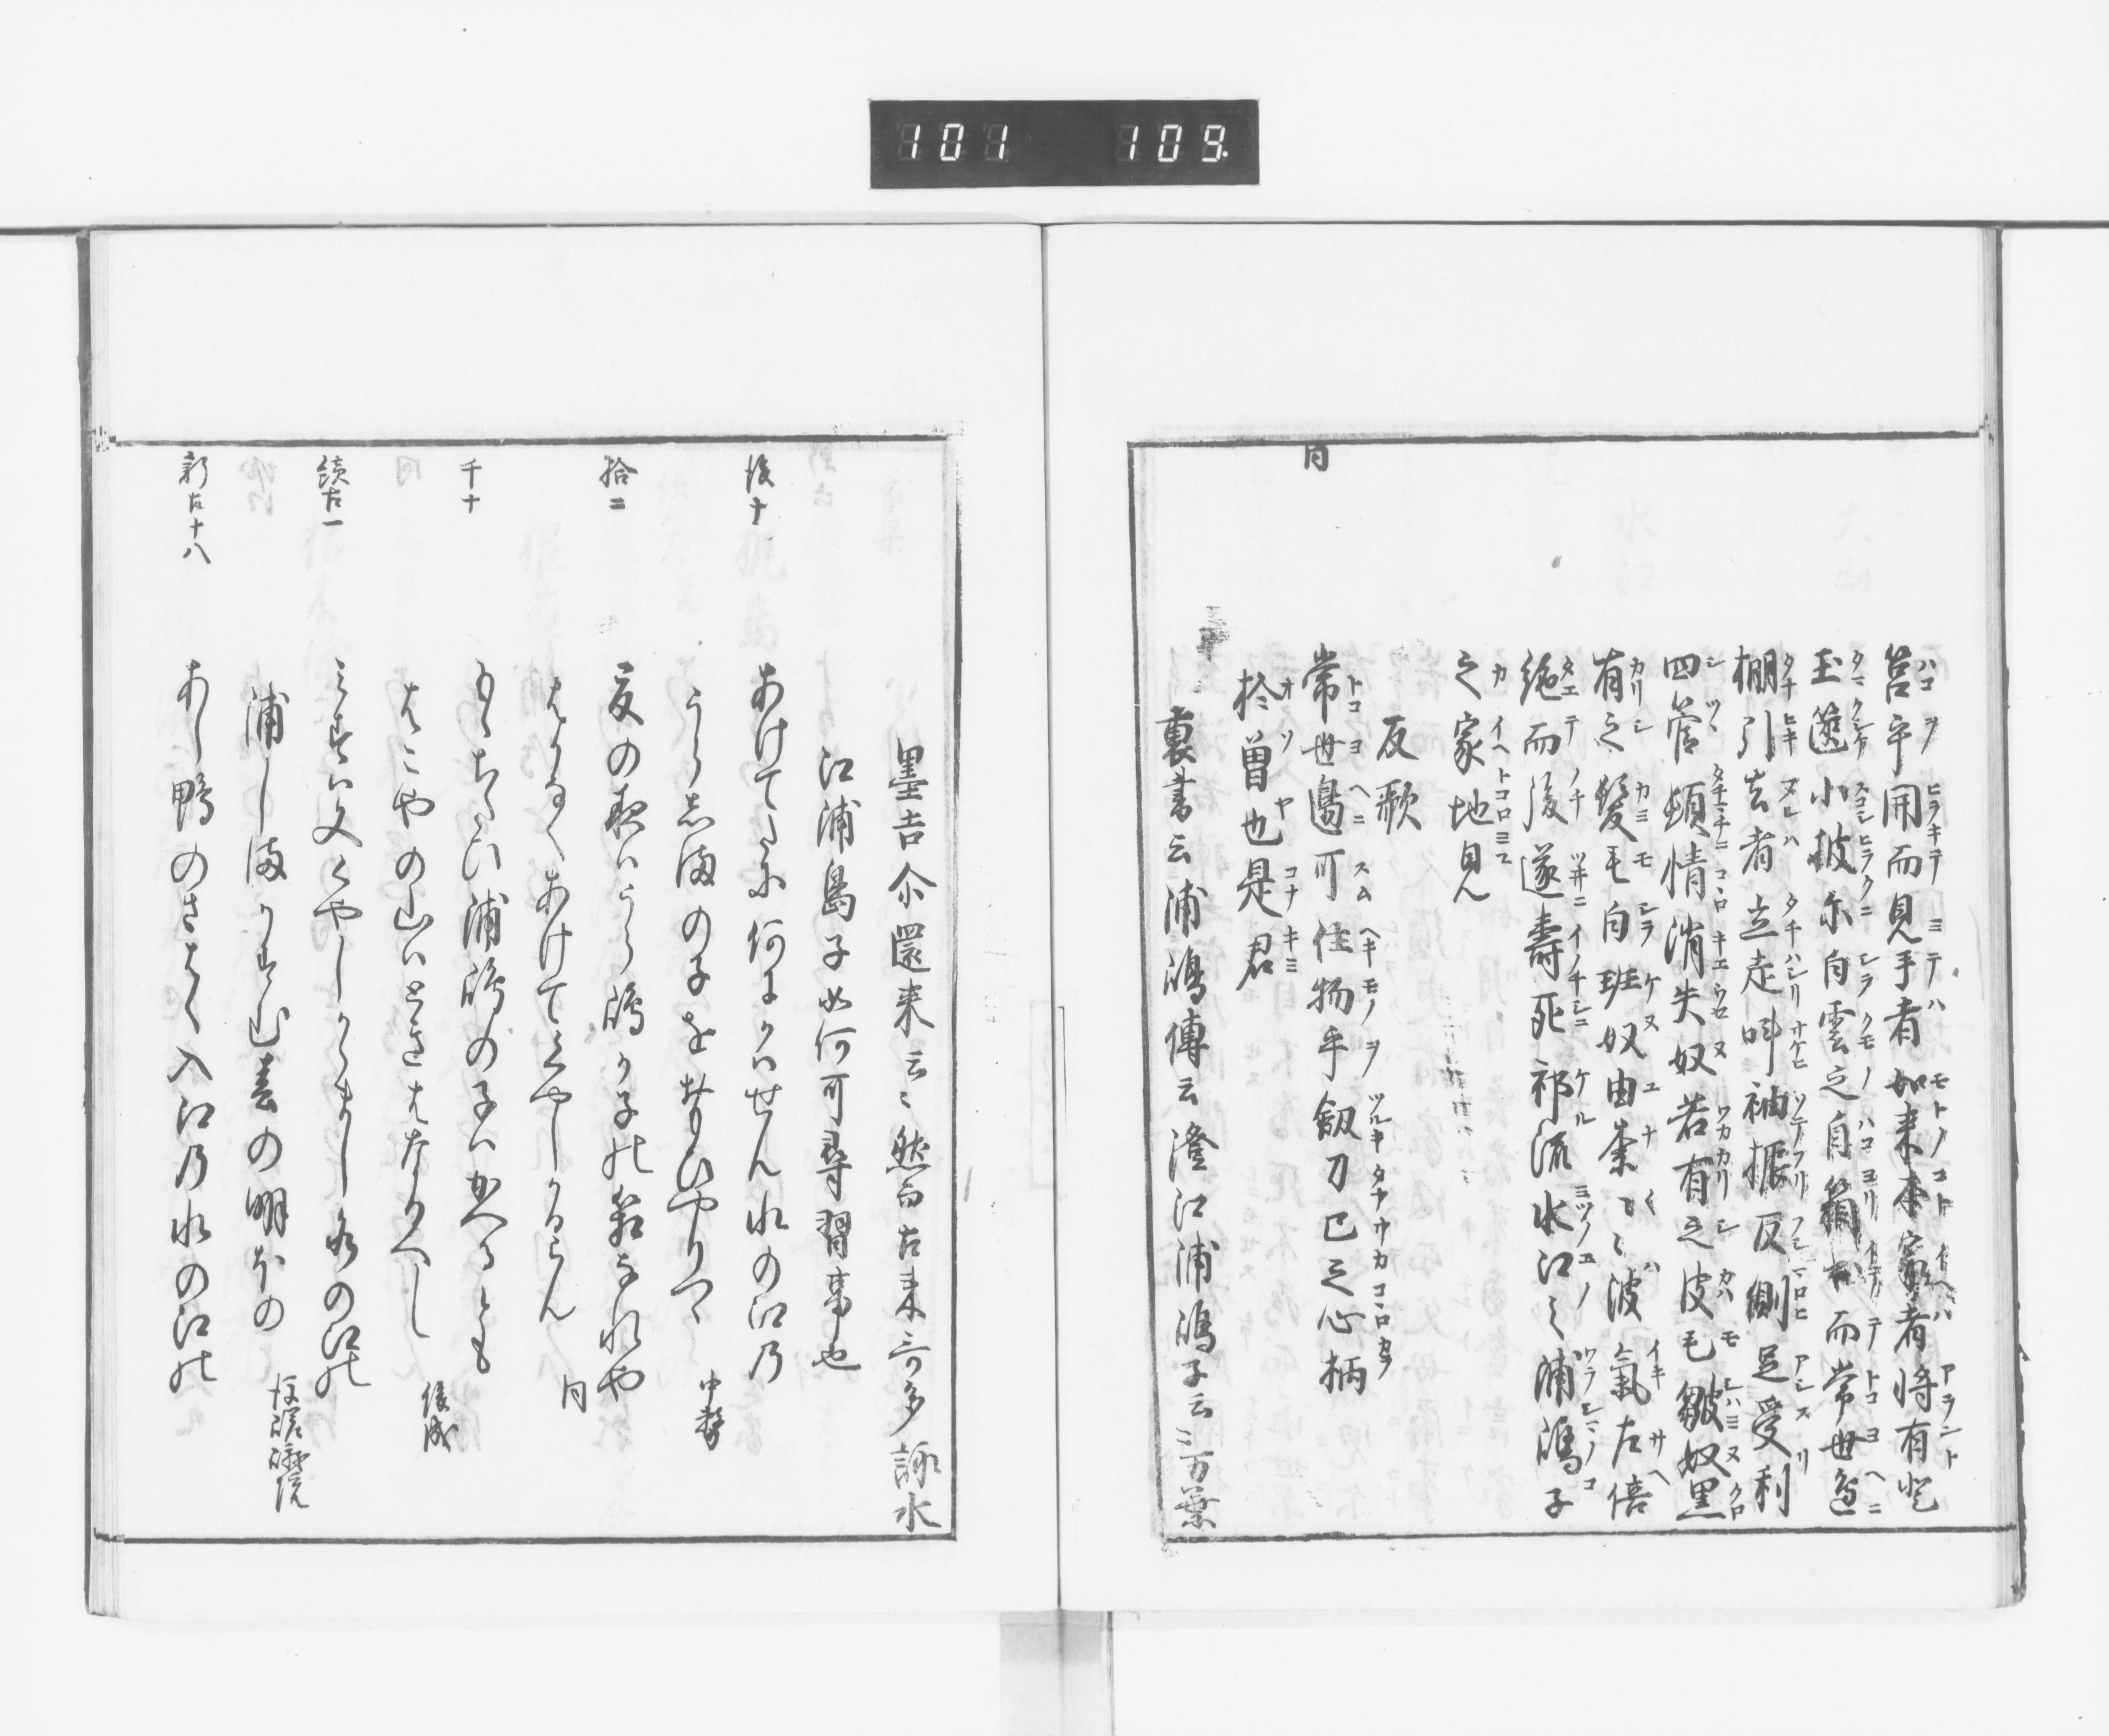 101 109.
筥乎開而見手者如来本家者将有登
玉篋小披尓白雲之自箱出而常世邊
棚引去者立走叫袖振反側足受利
四管頓情消失奴若有之皮毛皺奴黒
有之髪毛白班奴由奈由奈波氣左倍
絶而後遂壽死祁流水江之浦嶋子
之家地見
反歌
同
常世邊可住物乎劔刀己之心柄
於曽也是君
裏書云浦嶋傳云澄江浦嶋子云々万葉
墨吉尓還来云々然而古来哥多詠水
江浦島子如何可尋習事也
後十
あけてたに何にかはせん水の江乃
うらしまの子を思ひやりつゝ 中務
拾二
夏の夜はうら嶋か子の箱なれや
はかなくあけてくやしかるらん 同
千十
もゝちたひ浦嶋の子はかへるとも
はこやの山はときはなるへし 俊成
續古一
みすは又くやしからまし水の江の
浦しまかすむ春の明ほの 後嵯峨院
新古十八
あし鴨のさはく入江乃水の江の